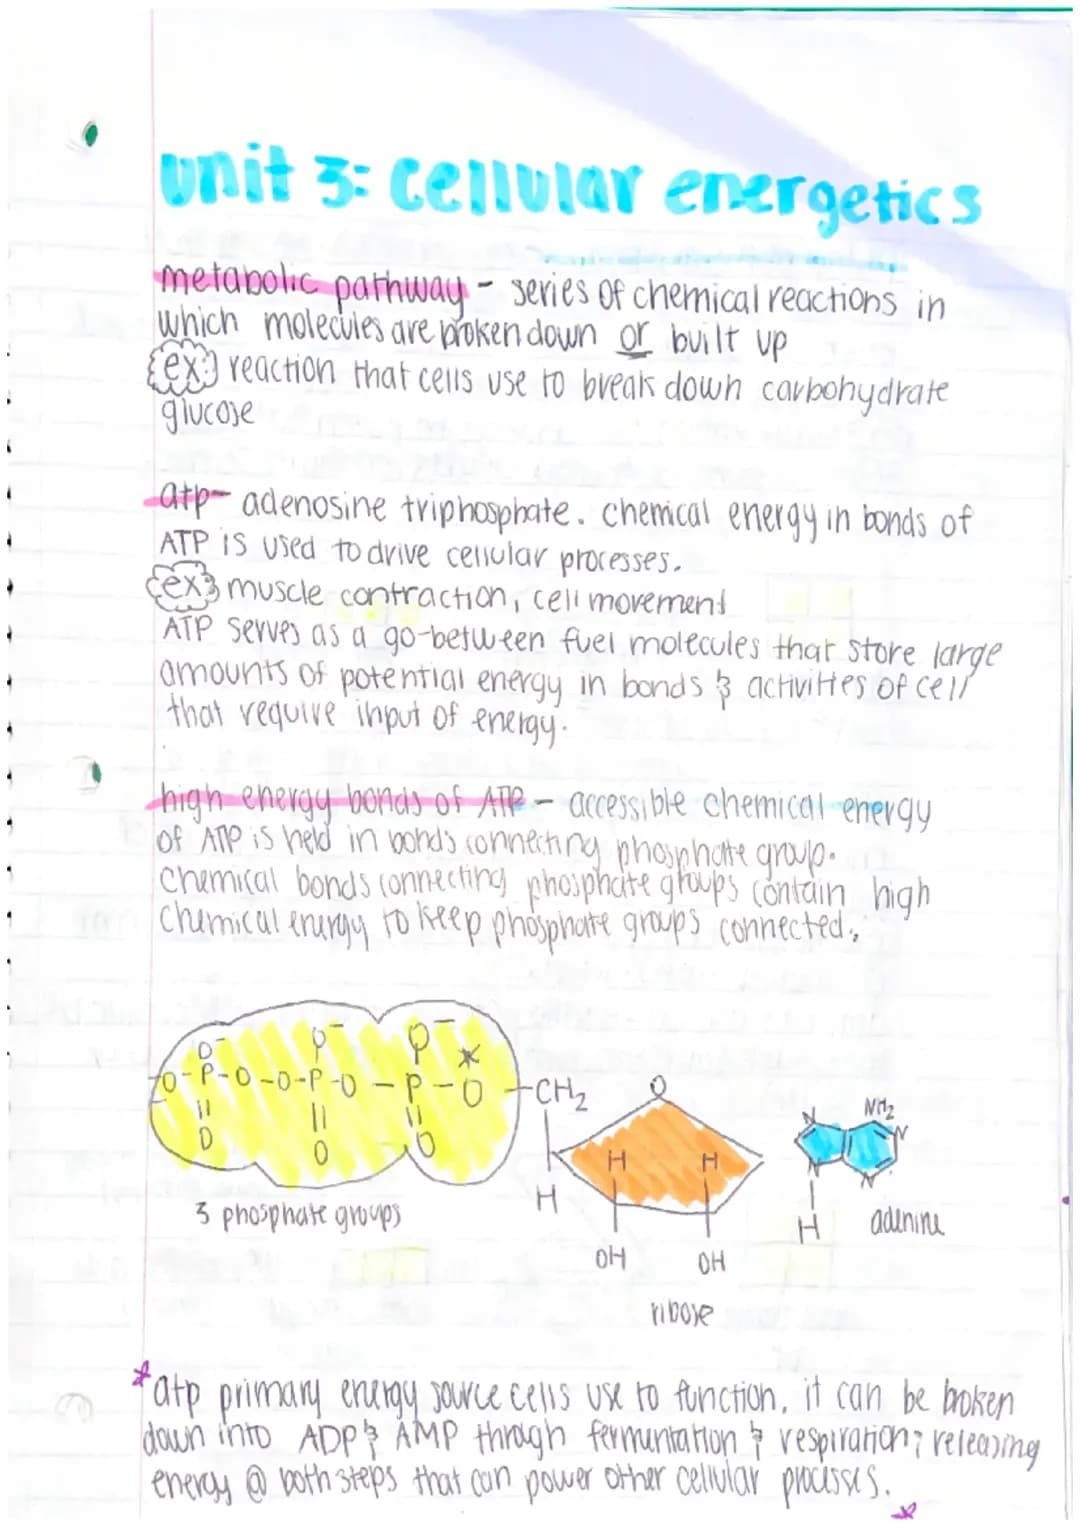 unit 3: cellular energetics
metabolic pathway - series of chemical reactions in
which molecules are broken down or built up
ex: reaction that cells use to break down carbohydrate
glucose
atp- adenosine triphosphate. chemical energy in bonds of
ATP is used to drive cellular processes.
ex: muscle contraction, cell movement
ATP serves as a go-between fuel molecules that store large
amounts of potential energy in bonds & activities of cell
that require input of energy.
high energy bonds of ATP - accessible chemical energy
of ATP is held in bonds connecting phosphate group.
Chemical bonds connecting phosphate groups contain high
chemical energy to keep phosphate groups connected.
O⁻ O⁻ O⁻ *
O-P-O-O-P-O-P-O-CH₂
O O O
O
H H
H
OH OH
N NH₂ N
N N
H
3 phosphate groups
adenine
ribose
*atp primary energy source cells use to function. it can be broken
down into ADP & AMP through fermentation & respiration; releasing
energy @ both steps that can power other cellular processes.*